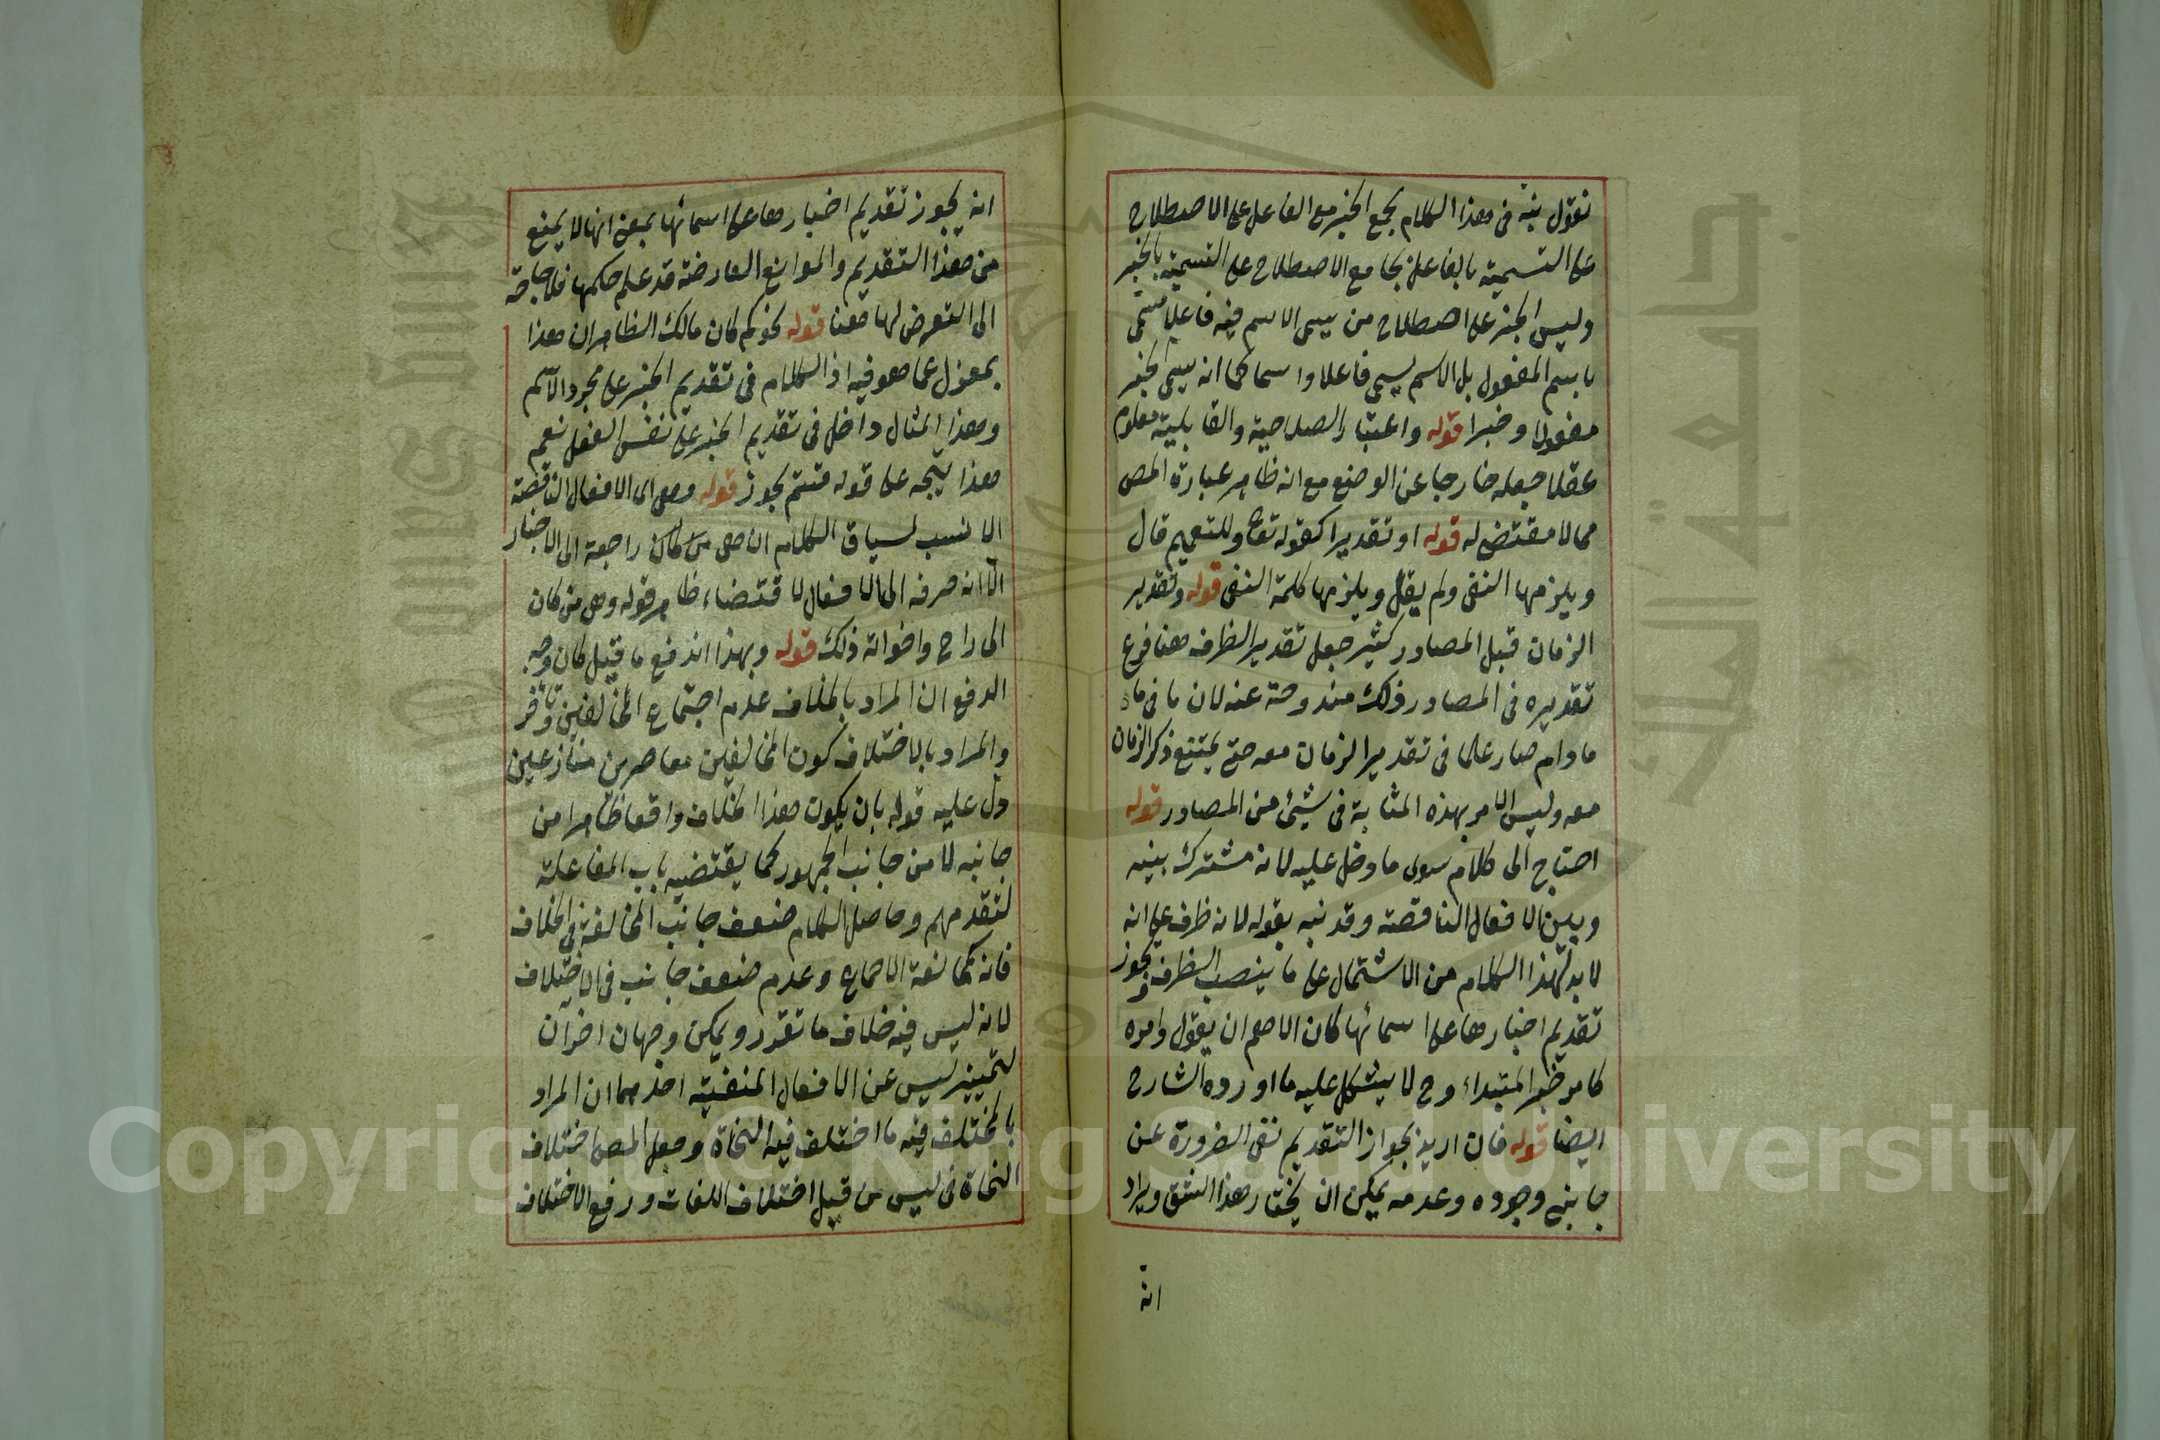 نقول نبه فى هذا الكلام بجمع الخبر مع الفاعل على الاصطلاح
على التسمية بالفاعل بجامع الاصطلاح على التسمية بالخبر
وليس الخبر على اصطلاح من يسمى الاسم فيه فاعلا مسمى
باسم المفعول بل الاسم يسمى فاعلا واسما كما انه يسمى الخبر
مفعولا وخبرا قوله واعتبار الصلاحية والقابلية معلوم
عقلا جعله خارجا عن الوضع مع انه ظاهر عبارة المص
مما لا مقتضى له قوله او تقديرا كقوله تعا وللتعميم قال
ويلزمها النفى ولم يقل ويلزمها كلمة النفى قوله وتقدير
الزمان قبل المصادر كثير جعل تقدير الظرف هنا فرع
تقديره فى المصادر ولك مندوحة عنه لان ما فى ما
مادام صار علما فى تقدير الزمان معه حتى يمتنع ذكر الزمان
معه وليس الامر بهذه المثابة فى شيئ من المصادر قوله
احتاج الى كلام سوى ما دخل عليه لانه مشترك بينه
وبين الافعال الناقصة وقد نبه بقوله لانه ظرف على انه
لا بد لهذا الكلام من الاشتمال على ما ينصب الظرف ويجوز
تقديم اخبارها على اسمائها كان الاهم ان يقول وامره
كامر خبر المبتداء وح لا يشكل عليه ما اورده الشارح
ايضا قوله فان اريد بجواز التقديم نفى الضرورة عن
جانبى وجوده وعدمه يمكن ان يختار هذا الشق ويراد
انه
انه يجوز تقديم اخبارها على اسمائها بمعنى انها لا يمنع
من هذا التقديم والموانع العارضة قد علم حكمها فلا حاجة
الى التعرض لها هنا قوله نحو كم كان مالك الظاهر ان هذا
بمعزل عما هو فيه اذ الكلام فى تقديم الخبر على مجرد الاسم
وهذا المثال داخل فى تقديم الخبر على نفس الفعل نعم
هذا يتجه على قوله قسم يجوز قوله وهى اى الافعال الناقصة
الانسب لسياق الكلام ان هى من كان راجعة الى الاخبار
الا انه صرفه الى الافعال لاقتضاء ظاهر قوله وهى من كان
الى راح واخواته ذلك قوله وبهذا اندفع ما قيل كان وجه
الدفع ان المراد بالخلاف عدم اجتماع المخالفين وتأخر
والمراد بالاختلاف كون المخالفين معاصرين متنازعين
دل عليه قوله بان يكون هذا الخلاف واقعا ظاهرا من
جانبه لا من جانب الجمهور كما يقتضيه باب المفاعلة
لتقدمهم وحاصل الكلام ضعف جانب المخالفة فى الخلاف
فانه كمخالفة الاجماع وعدم ضعف جانب فى الاختلاف
لانه ليس فيه خلاف ما تقرر ويمكن وجهان اخران
لتمييز ليس عن الافعال المنفية احدهما ان المراد
بالمختلف فيه ما اختلف فيه النحاة وجعل المص اختلاف
النحاة فى ليس من قبيل اختلاف اللغات ورفع الاختلاف
Copyright © King Saud University